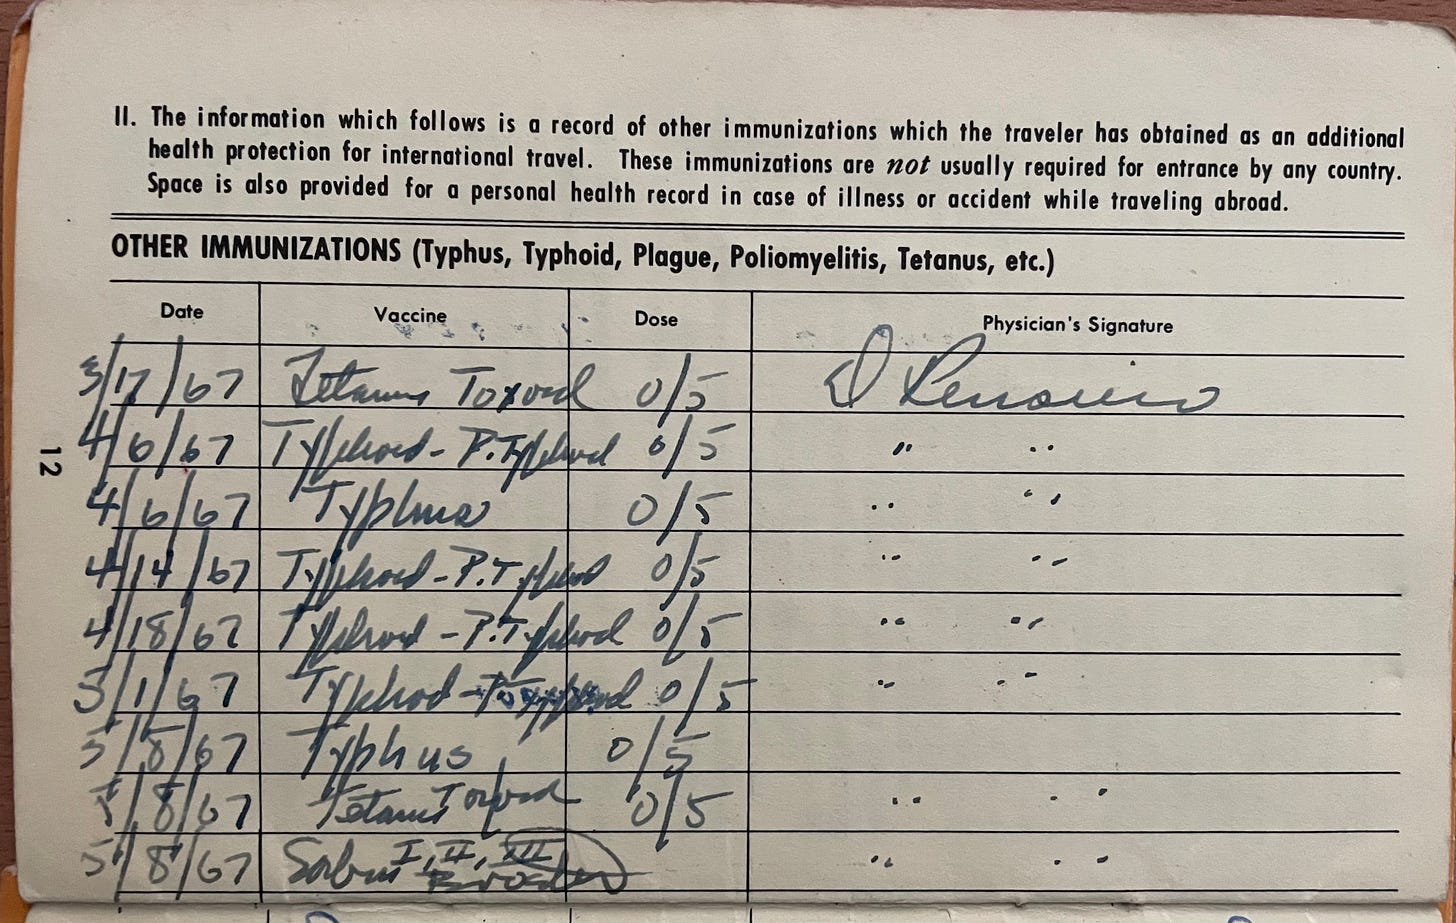 II. The information which follows is a record of other immunizations which the traveler has obtained as an additional
health protection for international travel. These immunizations are not usually required for entrance by any country.
Space is also provided for a personal health record in case of illness or accident while traveling abroad.
OTHER IMMUNIZATIONS (Typhus, Typhoid, Plague, Poliomyelitis, Tetanus, etc.)
Date Vaccine Dose Physician's Signature
3/17/67 Tetanus Toxoid 0/5
4/6/67 Typhoid - P.Typhoid 0/5 " "
4/6/67 Typhus 0/5 " "
4/14/67 Typhoid - P.Typhoid 0/5 " "
4/18/67 Typhoid - P.Typhoid 0/5 " "
5/1/67 Typhoid - 0/5 " "
5/8/67 Typhus 0/5
5/8/67 Tetanus Toxoid 0/5 " "
5/8/67 I, II, " "
12